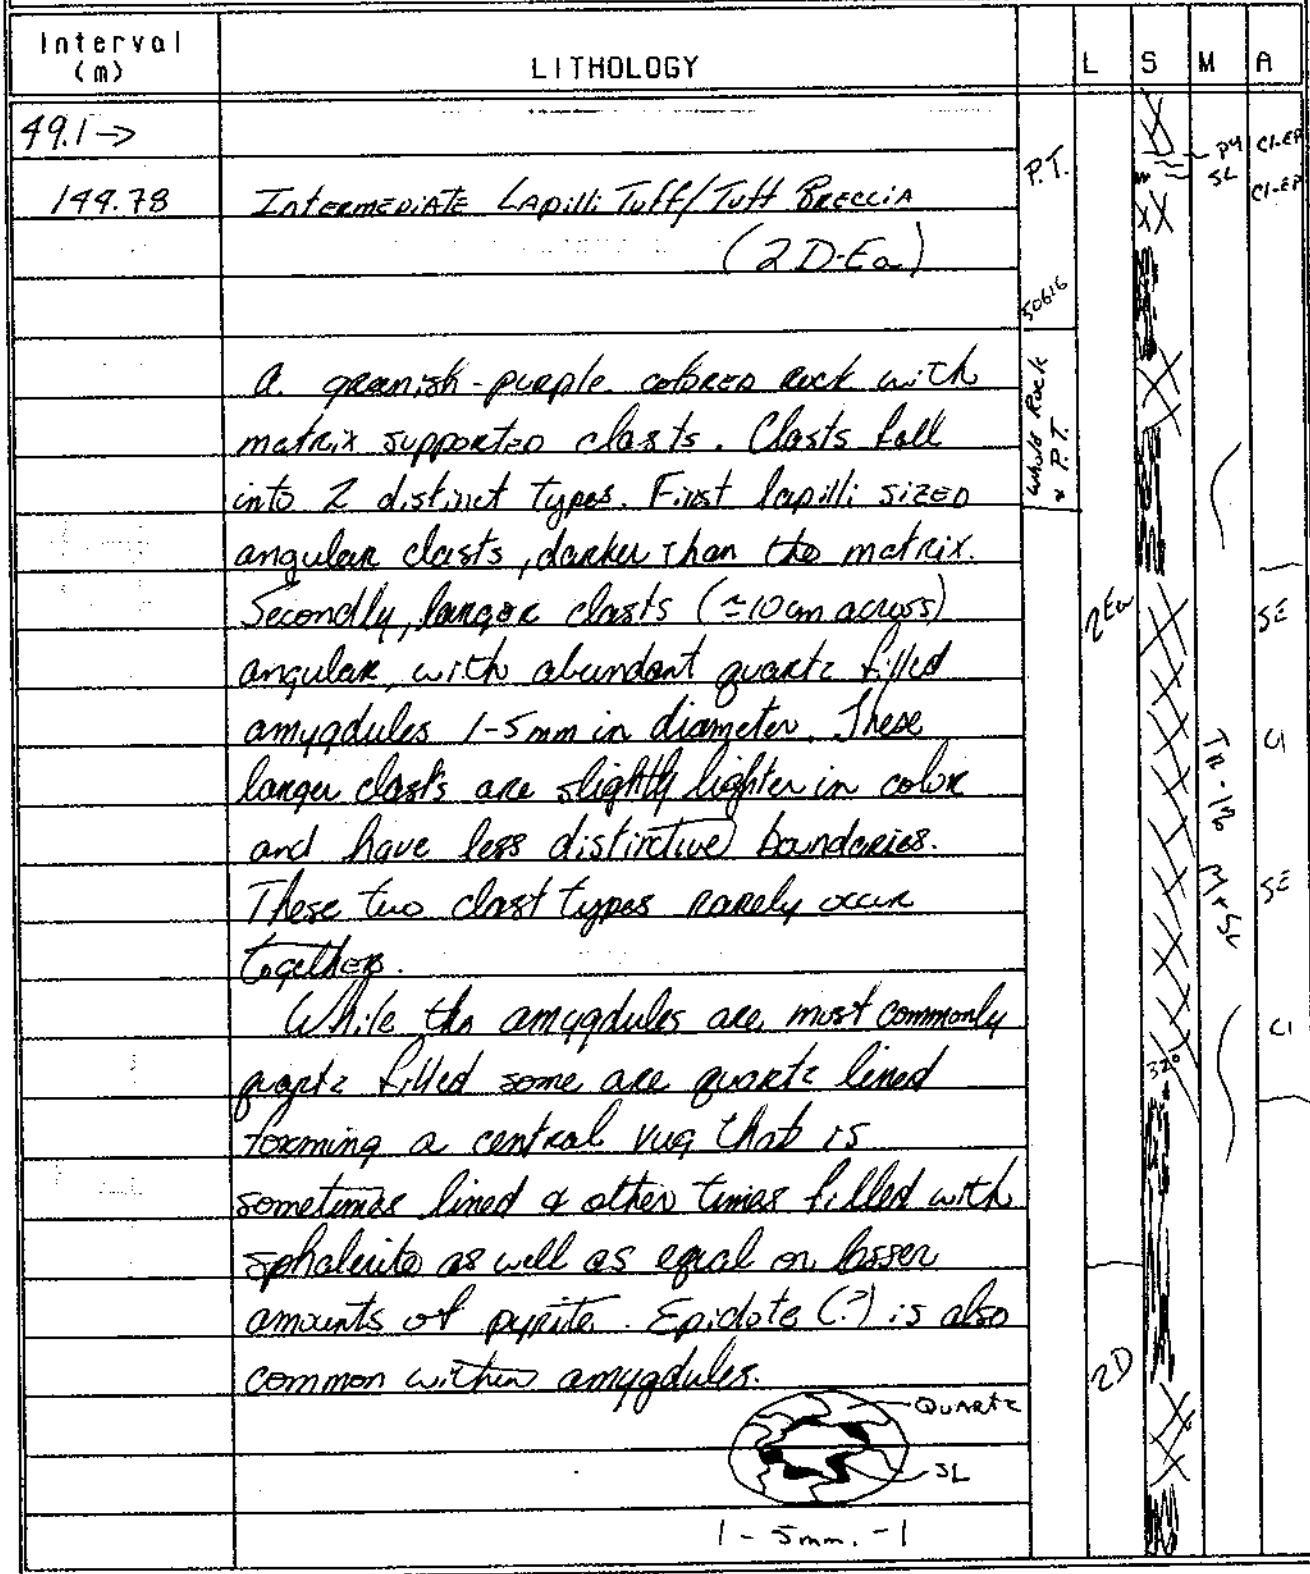 Interval
(m)
LITHOLOGY
L S M A
49.1->
144.78 Intermediate Lapilli Tuff/Tuff Breccia
(2D-Ea)
A greenish-purple colored rock with
matrix supported clasts. Clasts fall
into 2 distinct types. First lapilli sized
angular clasts, darker than the matrix.
Secondly, larger clasts (≃10cm across)
angular, with abundant quartz filled
amygdules 1-5mm in diameter. These
larger clasts are slightly lighter in color
and have less distinctive boundaries.
These two clast types rarely occur
together.
While the amygdules are most commonly
quartz filled some are quartz lined
forming a central vug that is
sometimes lined & other times filled with
sphalerite as well as equal or lesser
amounts of pyrite. Epidote (?) is also
common within amygdules.
Quartz
SL
1-5mm.-1
P.T.
50616
Whole Rock
& P.T.
2Ea
2D
32°
py
SL
TR-1%
Py+SL
Cl-EP
Cl-EP
SE
Cl
SE
Cl